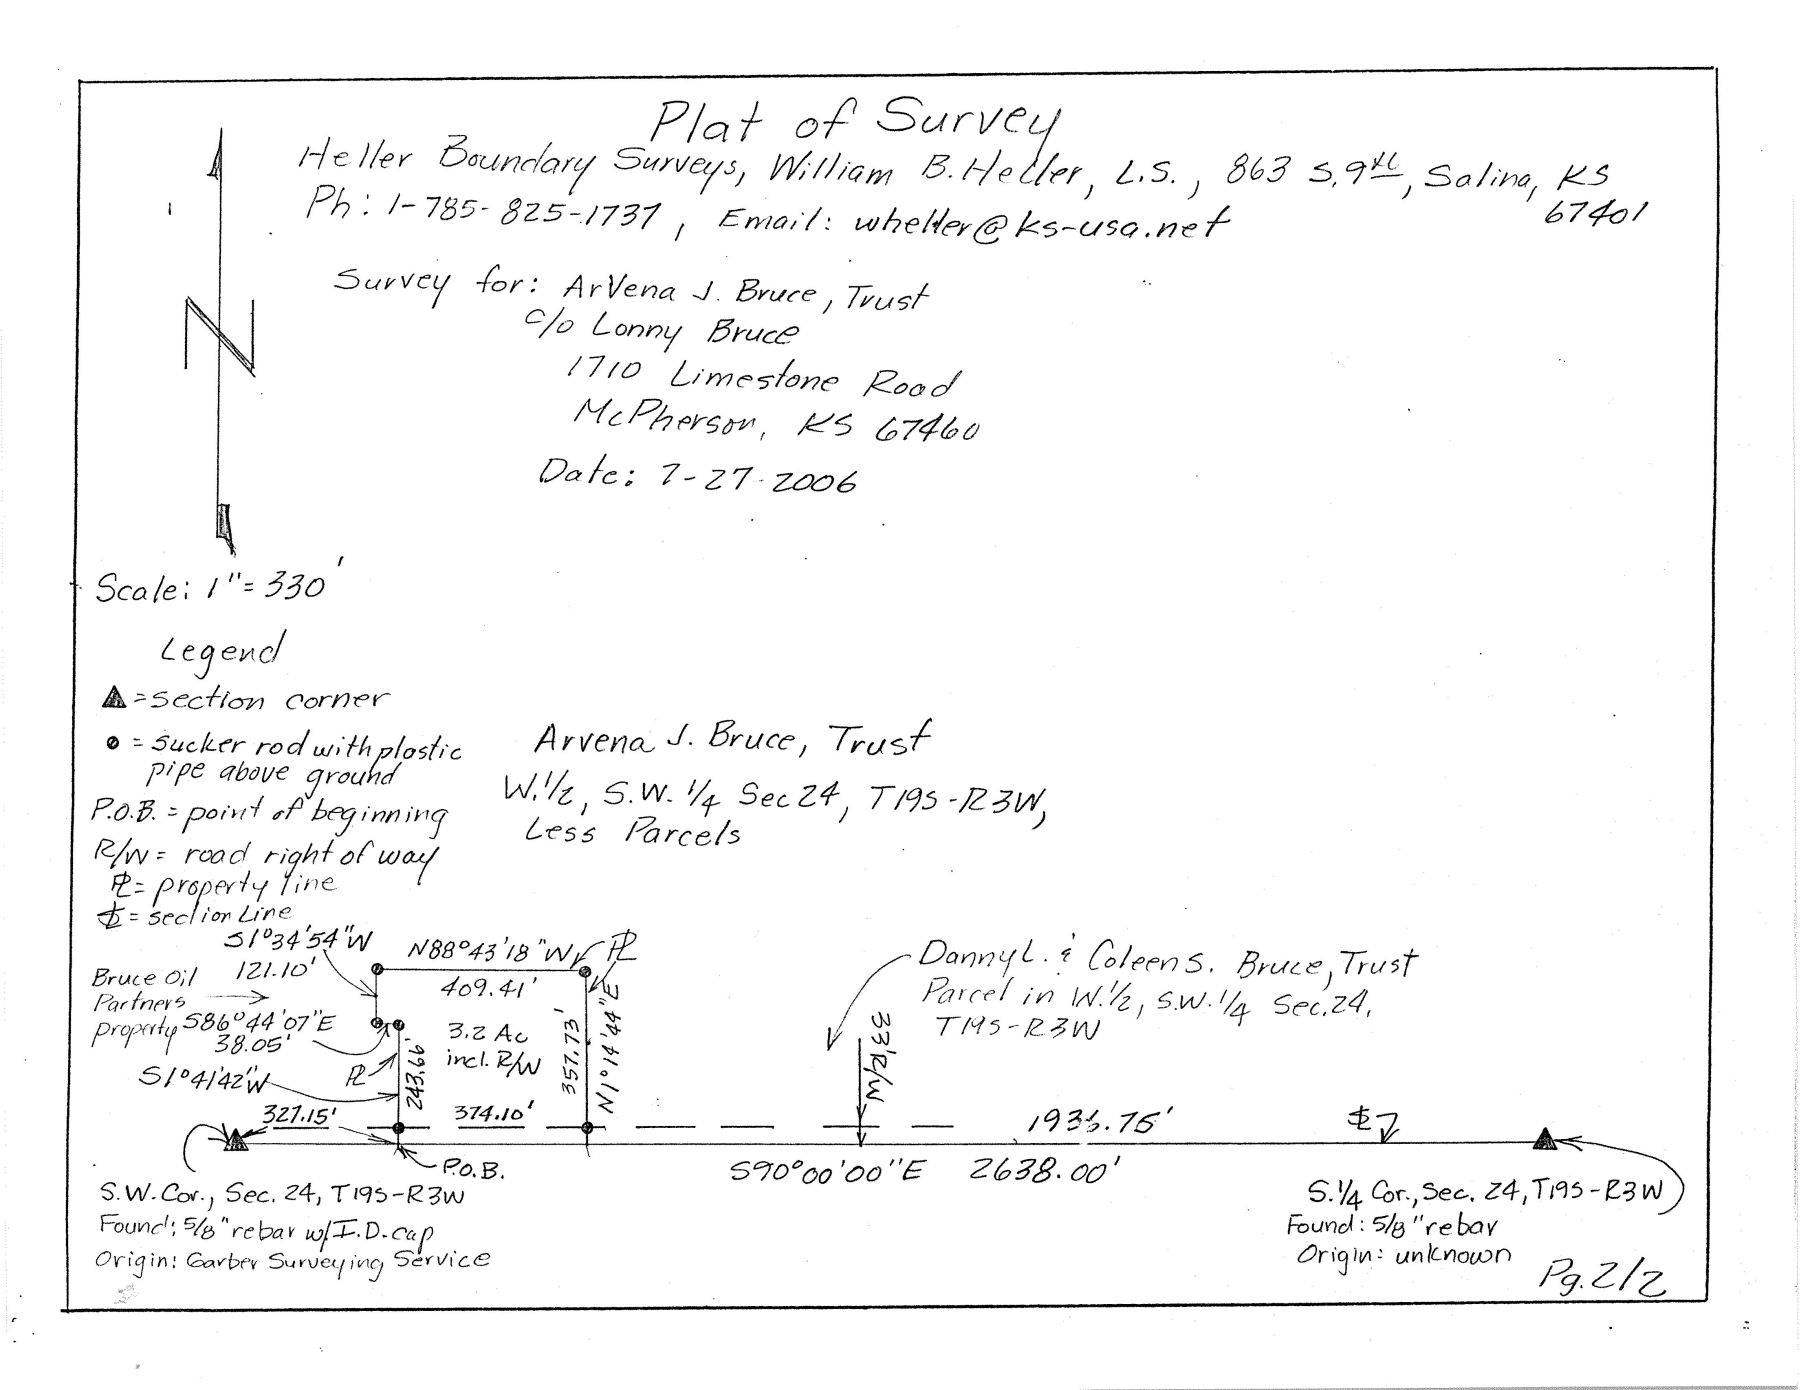 Plat of Survey
Heller Boundary Surveys, William B. Heller, L.S., 863 S. 9th, Salina, KS
67401
Ph: 1-785-825-1737, Email: wheller@ks-usa.net
Survey for: ArVena J. Bruce, Trust
c/o Lonny Bruce
1710 Limestone Road
McPherson, KS 67460
Date: 7-27-2006
N
Scale: 1"=330'
Legend
▲=section corner
● = sucker rod with plastic
pipe above ground
P.O.B. = point of beginning
R/W = road right of way
PL= property line
SL= section Line
Arvena J. Bruce, Trust
W.1/2, S.W. 1/4 Sec 24, T19S-R3W,
Less Parcels
S1°34'54"W
121.10'
N88°43'18"W
PL
409.41'
Bruce Oil
Partners
property
S86°44'07"E
38.05'
3.2 Ac
incl. R/W
PL
S1°41'42"W
243.66'
357.73'
N1°14'44"E
Danny L. & Coleen S. Bruce, Trust
Parcel in W.1/2, S.W. 1/4 Sec. 24,
T19S-R3W
33'R/W
327.15'
374.10'
SL
P.O.B.
S90°00'00"E 2638.00'
S.W. Cor., Sec. 24, T19S-R3W
Found: 5/8" rebar w/I.D. cap
Origin: Garber Surveying Service
S.1/4 Cor., Sec. 24, T19S-R3W
Found: 5/8" rebar
Origin: unknown
Pg. 2/2